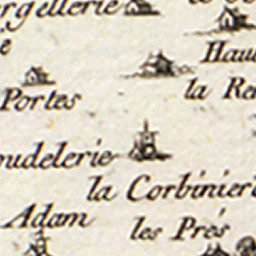 rgellerie
Hau
la Re
Portes
oudelerie
la Corbinieri
Adam
les Prés